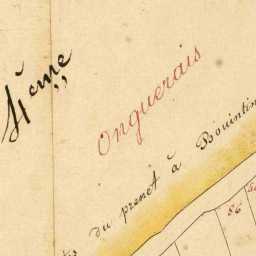 4eme
Onguerais
du prenet à Bouintin
56